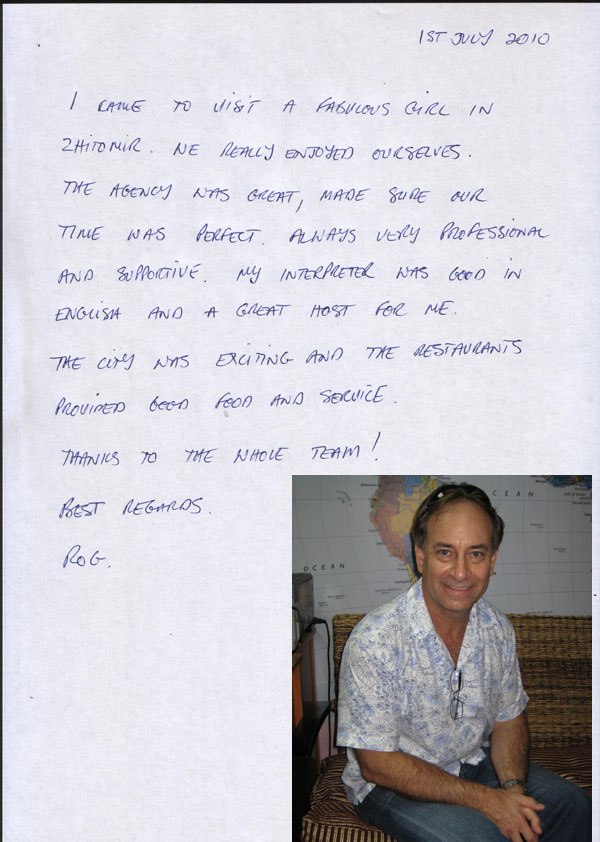 1ST JULY 2010
I CAME TO VISIT A FABULOUS GIRL IN
ZHITOMIR. WE REALLY ENJOYED OURSELVES.
THE AGENCY WAS GREAT, MADE SURE OUR
TIME WAS PERFECT. ALWAYS VERY PROFESSIONAL
AND SUPPORTIVE. MY INTERPRETER WAS GOOD IN
ENGLISH AND A GREAT HOST FOR ME.
THE CITY WAS EXCITING AND THE RESTAURANTS
PROVIDED GOOD FOOD AND SERVICE.
THANKS TO THE WHOLE TEAM!
BEST REGARDS.
ROG.
OCEAN
OCEAN